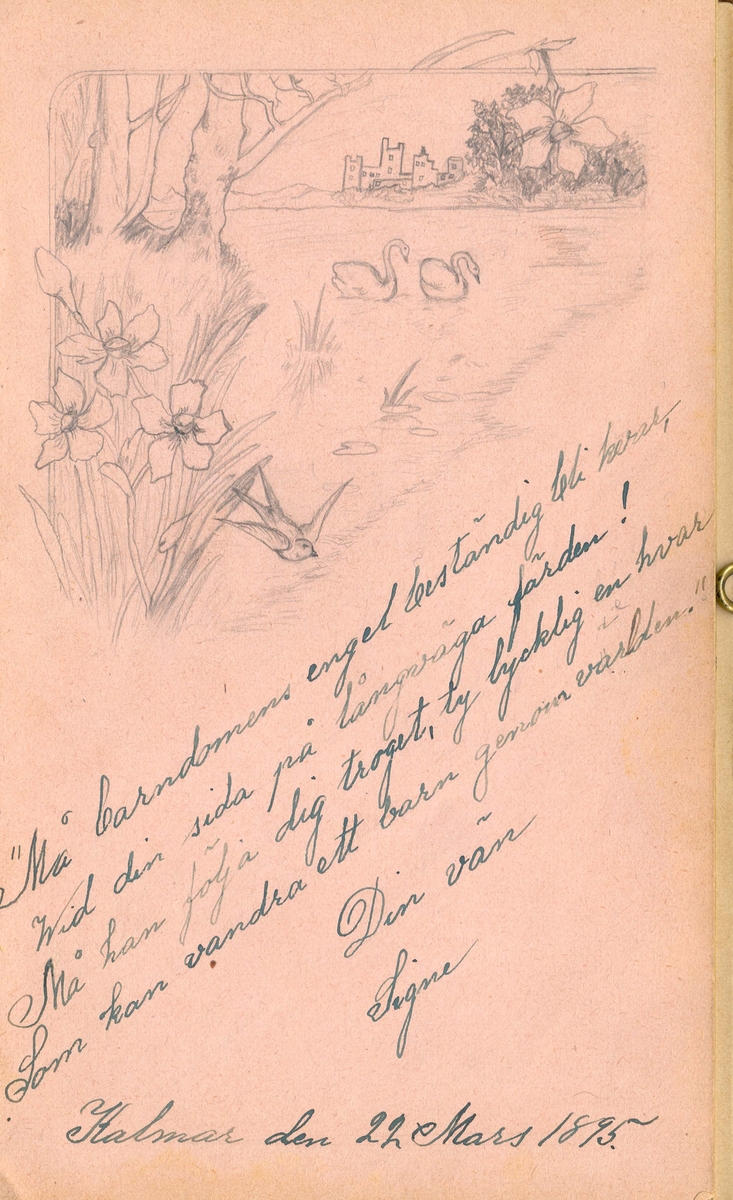 "Må barndomens engel beständig bli kvar,
Wid din sida på långväga färden!
Må han följa dig troget, ty lycklig en hvar
Som kan vandra ett barn genom världen."
Din vän
Signe
Kalmar den 22 Mars 1895.